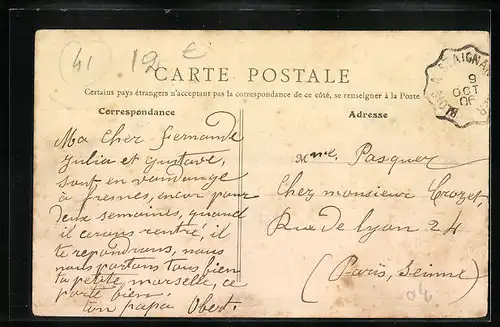 41
19 €
CARTE POSTALE
Certains pays étrangers n'acceptant pas la correspondance de ce côté, se renseigner à la Poste
Correspondance
Adresse
Ma cher fernande
Julia et Gustave,
sont en vandange
à fresnes, encor pour
deux semaines, quand
il cerons rentré, il
te repondrons, nous
nous portons tous bien
ta petite marselle, ce
porte bien.
ton papa Obert.
Mme, Pasquer
Chez monsieur Crozet,
Rue de lyon 24
(Paris, Seinne)
BLOIS A ST AIGNAN
9
OCT
06